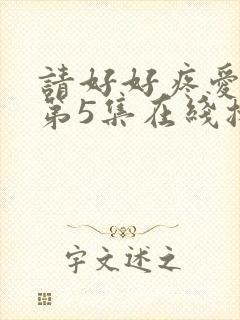 請好好疼愛
第5集在綫
宇文述之